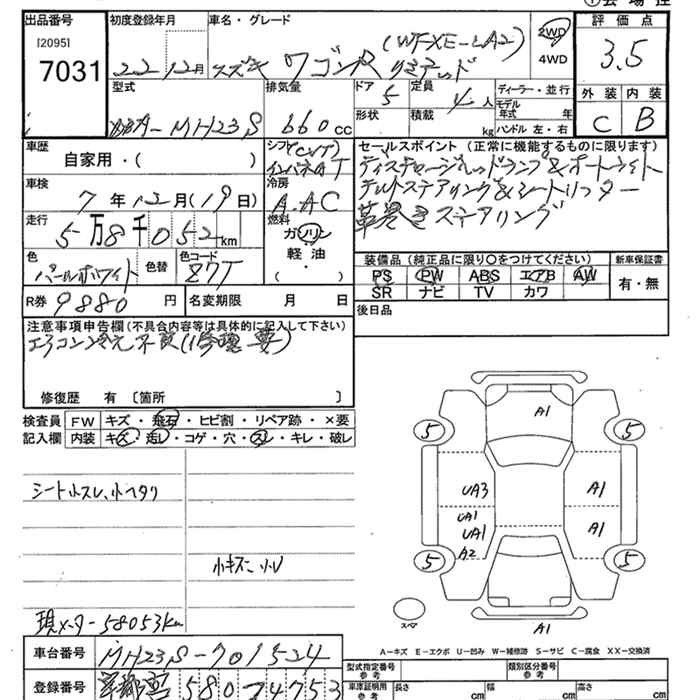 出品番号
[2095]
7031
初度登録年月
22 12月
車名・グレード
スズキ ワゴンR リミテッド
2WD
4WD
評価点
3.5
外装 内装
C B
型式
MH23S
排気量
660cc
ドア 5
形状
定員 4人
積載 kg
ディーラー・並行
モデル年式 年
ハンドル 左・右
車歴
自家用・( )
シフト
インパネAT
(CVT)
セールスポイント (正常に機能するものに限ります)
ディスチャージヘッドランプ&オートライト
チルトステアリング&シートリフター
革巻きステアリング
車検
7年12月(19日)
冷房
A.AC
走行
5万8千052km
燃料
ガソリン
軽油・
( )
色
パールホワイト
色替
色コード
Z7T
R券 9880円
名変期限 月 日
装備品 (純正品に限り○をつけてください)
PS PW ABS エアB AW
SR ナビ TV カワ
新車保証書
有・無
後日品
注意事項申告欄(不具合内容等は具体的に記入して下さい)
修復歴 有 〔箇所 〕
検査員
記入欄
FW キズ・飛石・ヒビ割・リペア跡・×要
内装 キズ・汚レ・コゲ・穴・スレ・キレ・破レ
シート小スレ、小ヘタリ
小キズ
現メーター58053km
A1
5 5
UA3 A1
UA1
UA1 A1
A2
5 5
スペア
A1
A−キズ E−エクボ U−凹み W−補修跡 S−サビ C−腐食 XX−交換済
車台番号 MH23S-701524
登録番号
型式指定番号
参考
類別区分番号
参考
車庫証明用
参考
長さ cm
幅 cm
高さ cm